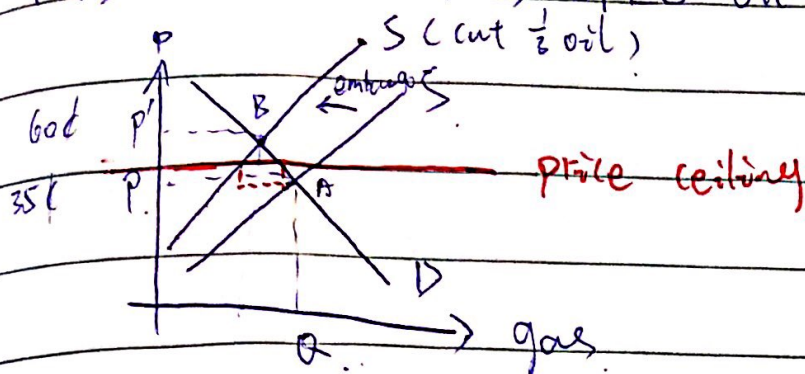 P
S (cut ⅓ oil)
embargo S
B
60¢ P'
price ceiling
35¢ P
A
D
Q gas